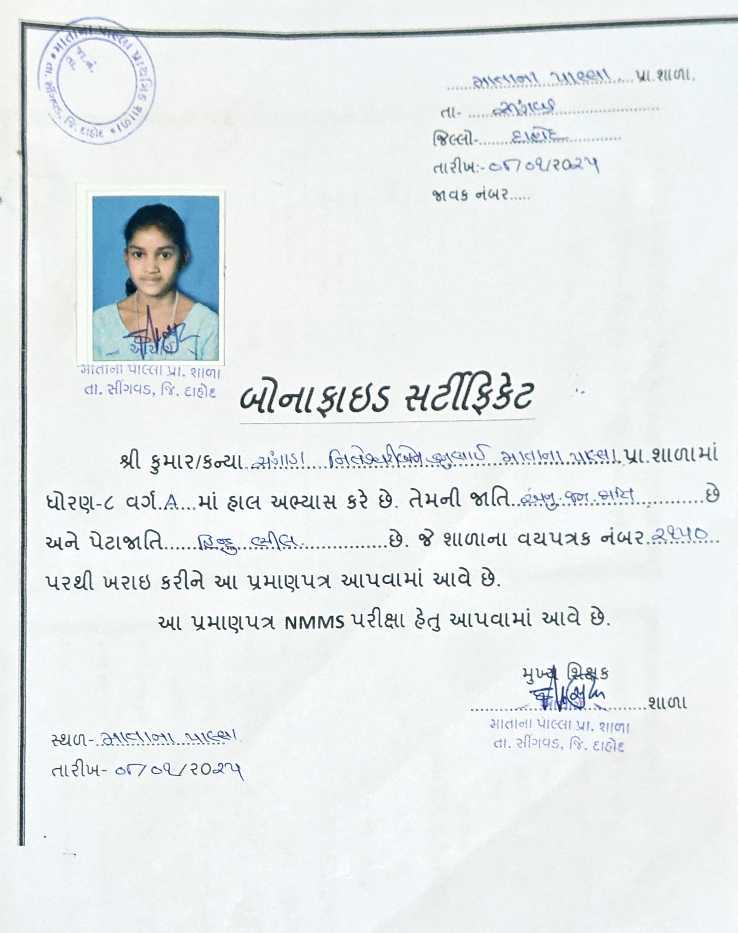 માતાના પાલ્લા પ્રા.શાળા.
તા- સીંગવડ
જિલ્લો- દાહોદ
તારીખ:- ૦૭/૦૧/૨૦૨૫
જાવક નંબર.....
માતાના પાલ્લા પ્રા. શાળા
તા. સીંગવડ, જિ. દાહોદ
બોનાફાઇડ સર્ટીફિકેટ
શ્રી કુમાર/કન્યા સંગાડા માતાના પાલ્લા પ્રા.શાળામાં
ધોરણ-૮ વર્ગ.A...માં હાલ અભ્યાસ કરે છે. તેમની જાતિ અનુ. જન જાતિ છે
અને પેટાજાતિ હિન્દુ ભીલ છે. જે શાળાના વયપત્રક નંબર ૨૧૫૦
પરથી ખરાઇ કરીને આ પ્રમાણપત્ર આપવામાં આવે છે.
આ પ્રમાણપત્ર NMMS પરીક્ષા હેતુ આપવામાં આવે છે.
મુખ્ય શિક્ષક
શાળા
માતાના પાલ્લા પ્રા. શાળા
તા. સીંગવડ, જિ. દાહોદ
સ્થળ- માતાના પાલ્લા
તારીખ- ૦૭/૦૧/૨૦૨૫